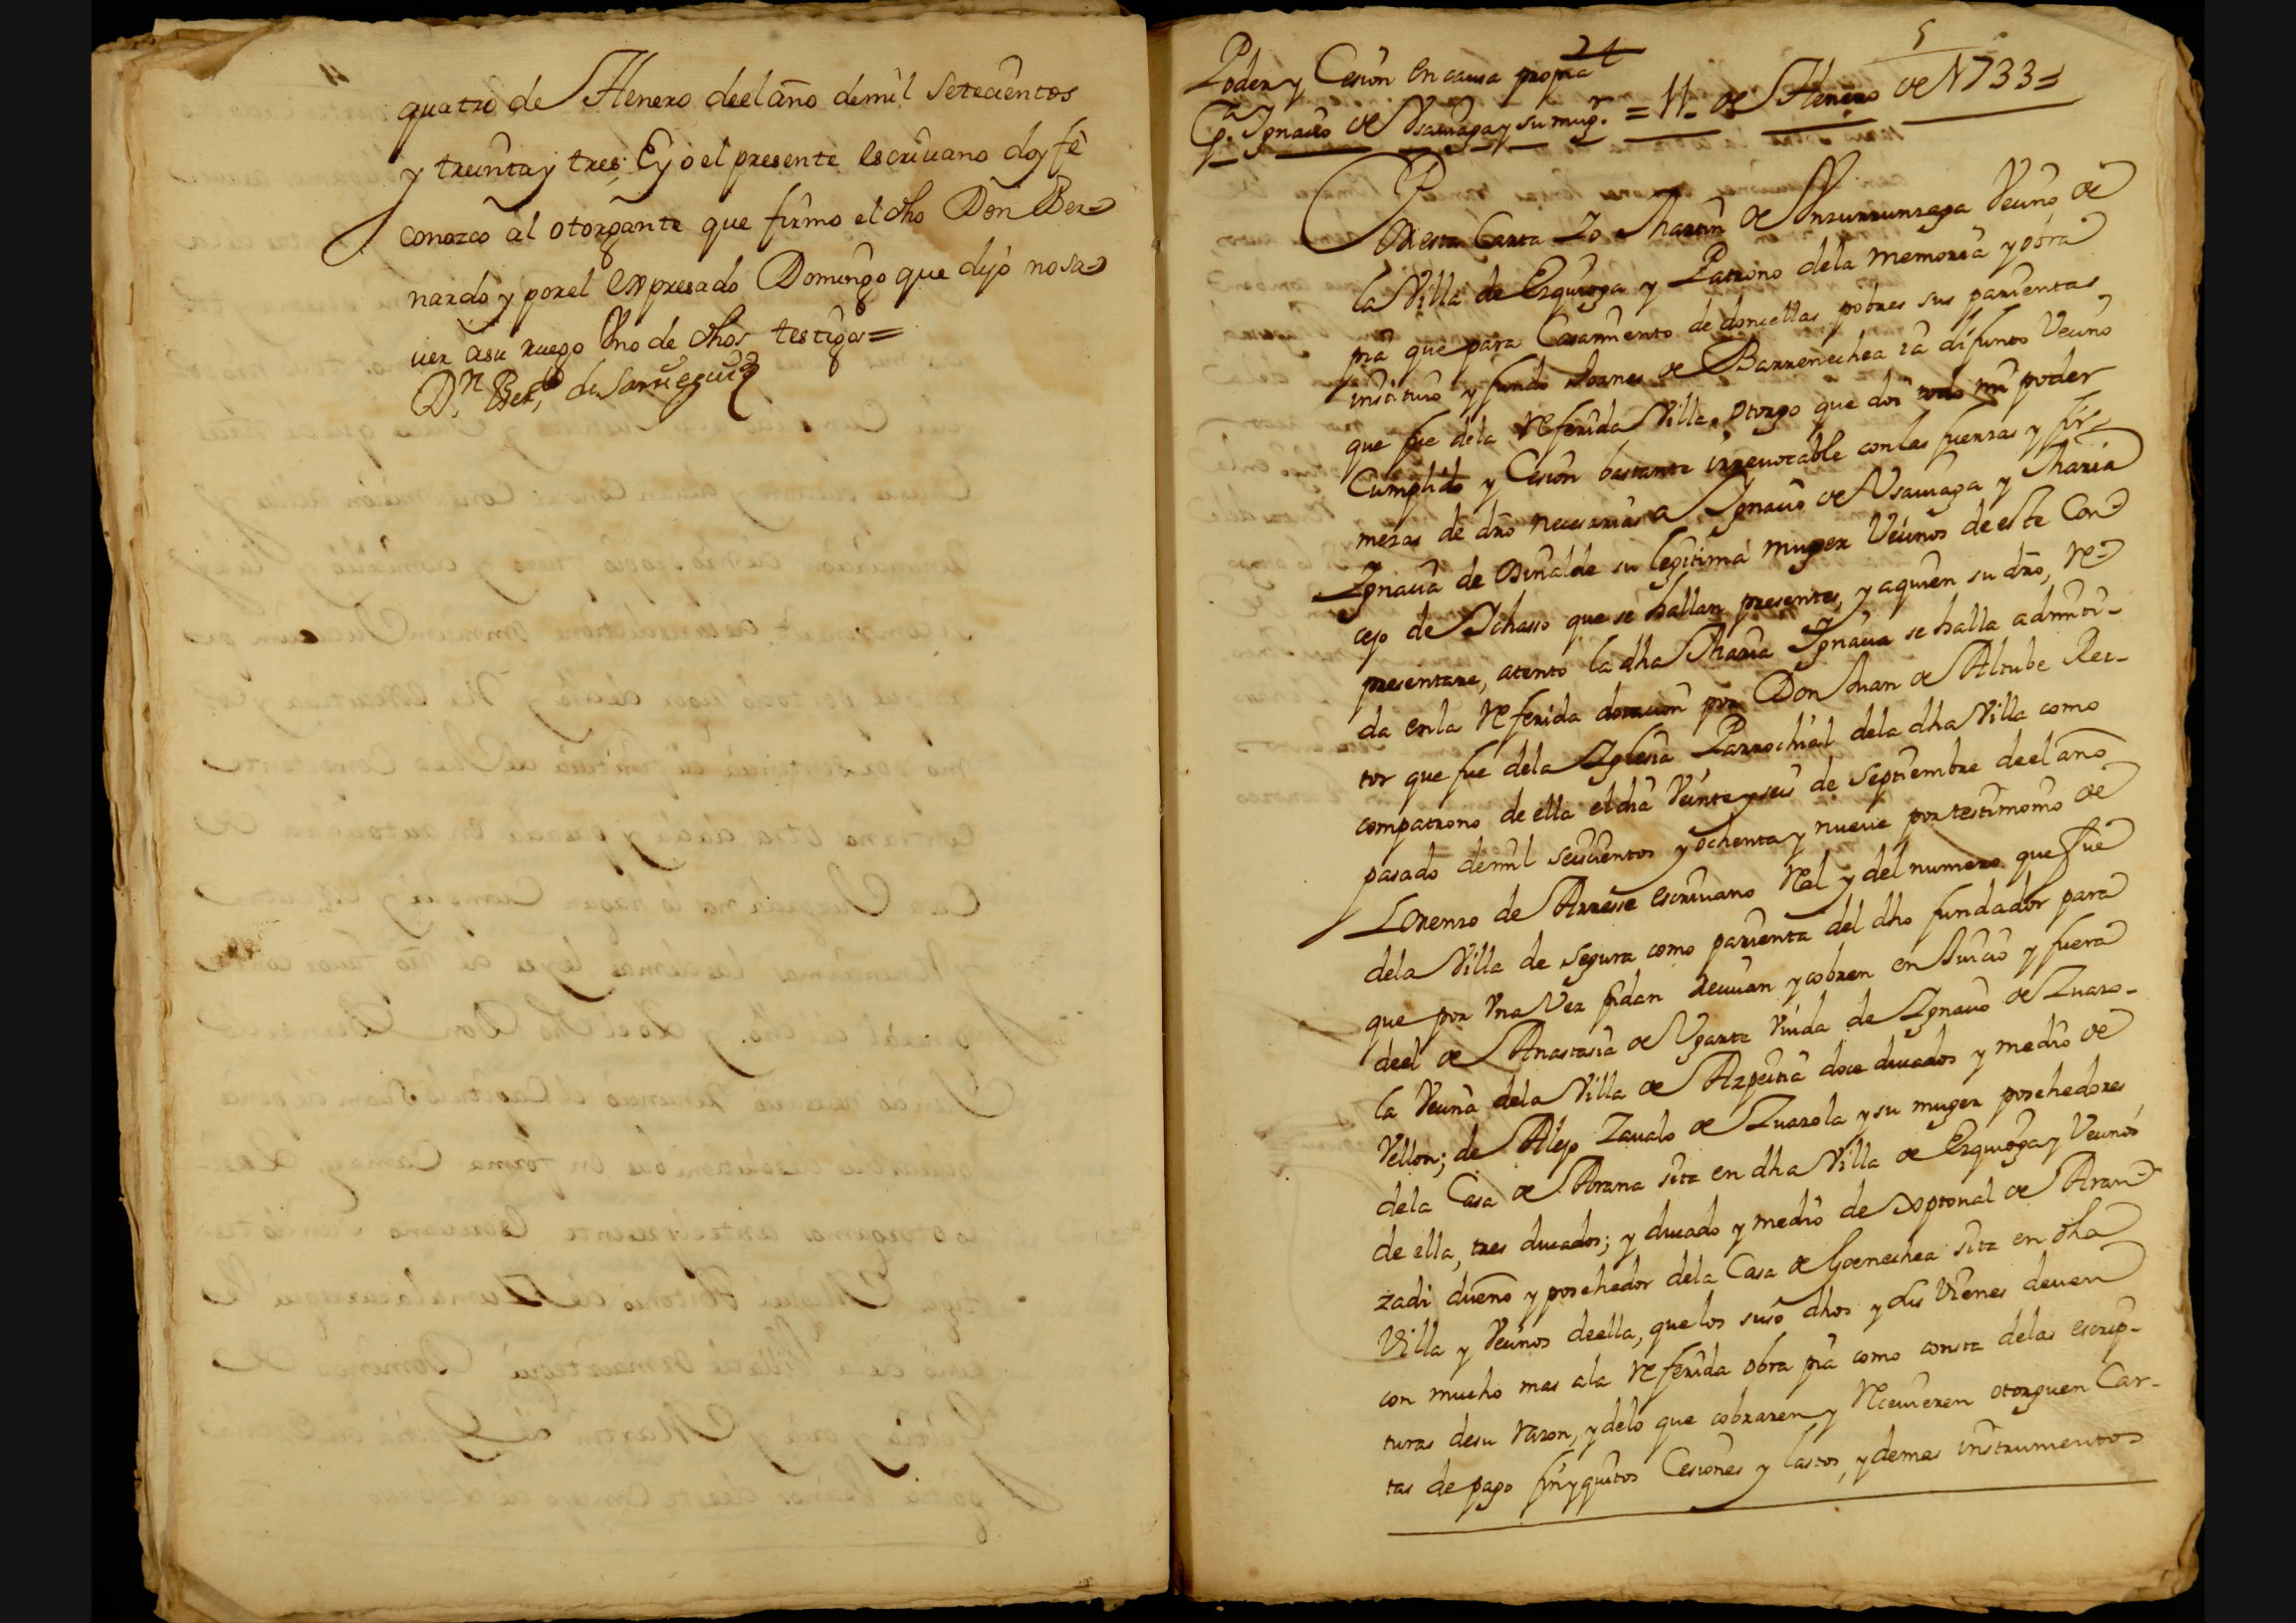 quatro de Henero deel año demil Setecientos
y treinta y tres; Eyo el presente escriuano doy fè
conozco al otorgante que firmo el dho Don Ber-
nardo y porel expresado Domingo que dijò no sa-
uer asu ruego Vno de dhos testigos=
Dn. Berdo de Jaureguiz
24
5
Poder y Cesion en causa propia
Pa. Ignacio de Vsarraga y su mugr. = 11. de Henero de 1733=
Por esta Carta Yo Martin de Inzurrunzaga Vecino de
la Villa de Ezquioga y Patrono dela memoria y obra
pia que para Casamiento de doncellas pobres sus parientas
instituio y fundo Joanes de Barrenechea ia difunto Vecino
que fue dela referida Villa, otorgo que doi todo mi poder
Cumplido y Cesion bastante irreuocable con las fuerzas y fir-
mezas de dro necesarias a Ignacio de Vsarraga y Maria
Ignacia de Osinalde su legitima muger Vecinos de este Con-
cejo de Ichasso que se hallan presentes, y aquien su dro, re-
presentare, atento la dha Maria Ignacia se halla admiti-
da enla referida dotacion por Don Juan de Altube Rec-
tor que fue dela Iglesia Parrochial dela dha Villa como
compatrono de ella el dia Veinte y seis de Septiembre deel año
pasado demil seiscientos y ochenta y nueue por testimonio de
Lorenzo de Arresse escriuano Real y del numero que fue
dela Villa de Segura como parienta del dho fundador para
que por Vna Vez pidan reciuan y cobren en Juicio y fuera
deel de Anastasia de Vgarte viuda de Ignacio de Zuazo-
la Vecina dela Villa de Azpeitia doce ducados y medio de
Vellon; de Alejo Zaualo de Zuazola y su muger posehedores
dela Casa de Arana sita en dha Villa de Ezquioga y Vecinos
de ella, tres ducados; y ducado y medio de Xptoual de Aran-
zadi dueño y posehedor dela Casa de Goenechea sita en dha
Villa y Vecinos deella, que los suso dhos y sus Vienes deuen
con mucho mas ala referida obra pia como consta delas escrip-
turas desu razon, y delo que cobraren y reciuieren otorguen Car-
tas de pago finyquitos Cesiones y lastos, y demas instrumentos